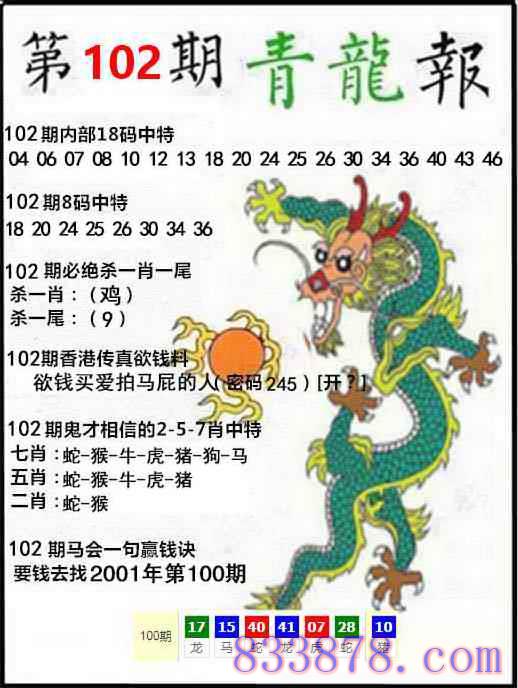 第102期青龍報
102期内部18码中特
04 06 07 08 10 12 13 18 20 24 25 26 30 34 36 40 43 46
102期8码中特
18 20 24 25 26 30 34 36
102期必绝杀一肖一尾
杀一肖：（鸡）
杀一尾：（9）
102期香港传真欲钱料
欲钱买爱拍马屁的人(密码245）[开？]
102期鬼才相信的2-5-7肖中特
七肖：蛇-猴-牛-虎-猪-狗-马
五肖：蛇-猴-牛-虎-猪
二肖：蛇-猴
102期马会一句赢钱诀
要钱去找2001年第100期
100期 17 15 40 41 07 28 10
龙 马 蛇 龙 虎 蛇 猪
833878.com